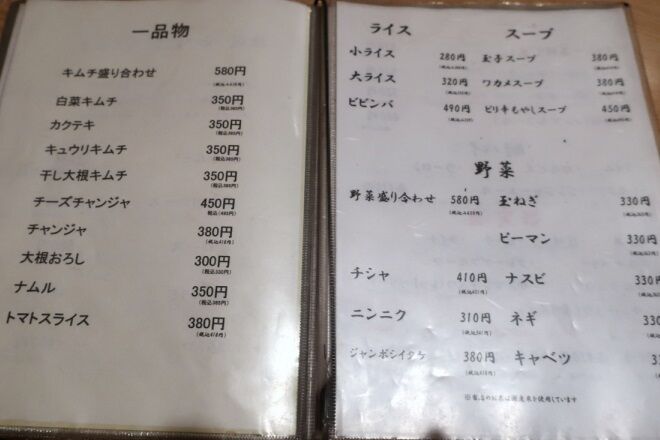 一品物
キムチ盛り合わせ 580円
白菜キムチ 350円
(税込385円)
カクテキ 350円
(税込385円)
キュウリキムチ 350円
(税込385円)
干し大根キムチ 350円
(税込385円)
チーズチャンジャ 450円
(税込495円)
チャンジャ 380円
(税込418円)
大根おろし 300円
(税込330円)
ナムル 350円
(税込385円)
トマトスライス 380円
(税込418円)
ライス
小ライス 280円
大ライス 320円
ビビンバ 490円
スープ
玉子スープ 380円
ワカメスープ 380円
ピリ辛もやしスープ 450円
野菜
野菜盛り合わせ 580円 玉ねぎ 330円
ピーマン 330円
チシャ 410円 ナスビ 330円
ニンニク 310円 ネギ 330
ジャンボシイタケ 380円 キャベツ
(税込418円)
※当店のお米は国産米を使用しています